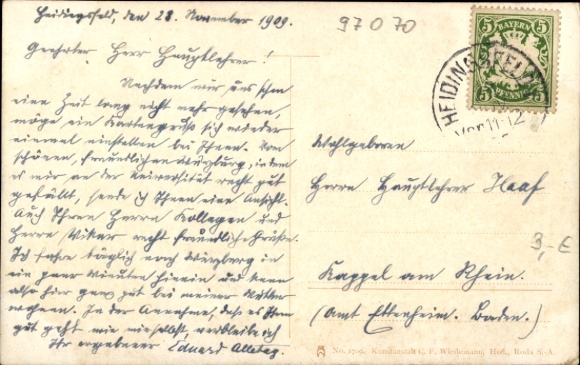 Heidingsfeld, den 28. November 1909.
97070
Geehrter Herr Hauptlehrer!
Nachdem wir uns schon
eine Zeit lang nicht mehr gesehen,
möge ein Kartengruss sich wieder
einmal einstellen bei Ihnen. Vom
schönen, freundlichen Würzburg, in dem
es mir an der Universität recht gut
gefällt, sende ich Ihnen eine Ansicht.
Auch Ihren Herrn Kollegen und
Herrn Vikar recht freundliche Grüße.
Ich fahre täglich nach Würzburg in
ein paar Minuten hinein und kann
also hier ganz gut bei meiner Mutter
wohnen. In der Annahme, dass es Ihnen
gut geht wie mir selbst, verbleibe ich
Ihr ergebener Eduard
5 BAYERN 5
5 PFENNIG 5
HEIDINGSFELD
Vor. 11-12
Wohlgeboren
Herrn Hauptlehrer Haaf
3,- €
Kappel am Rhein.
(Amt Ettenheim. Baden.)
No. 1709. Kunstanstalt C. F. Wiedemann, Hof, Roda S.-A.